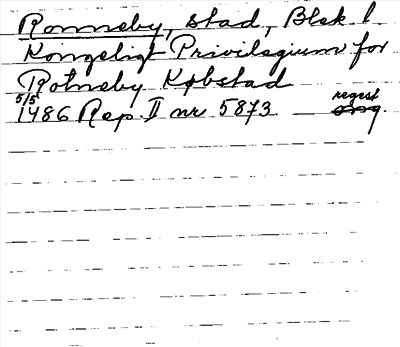 Ronneby, stad, Blek. l.
Kongeligt Privilegium for
Rotneby Købstad
5/5
1486 Rep. II nr 5873 regest